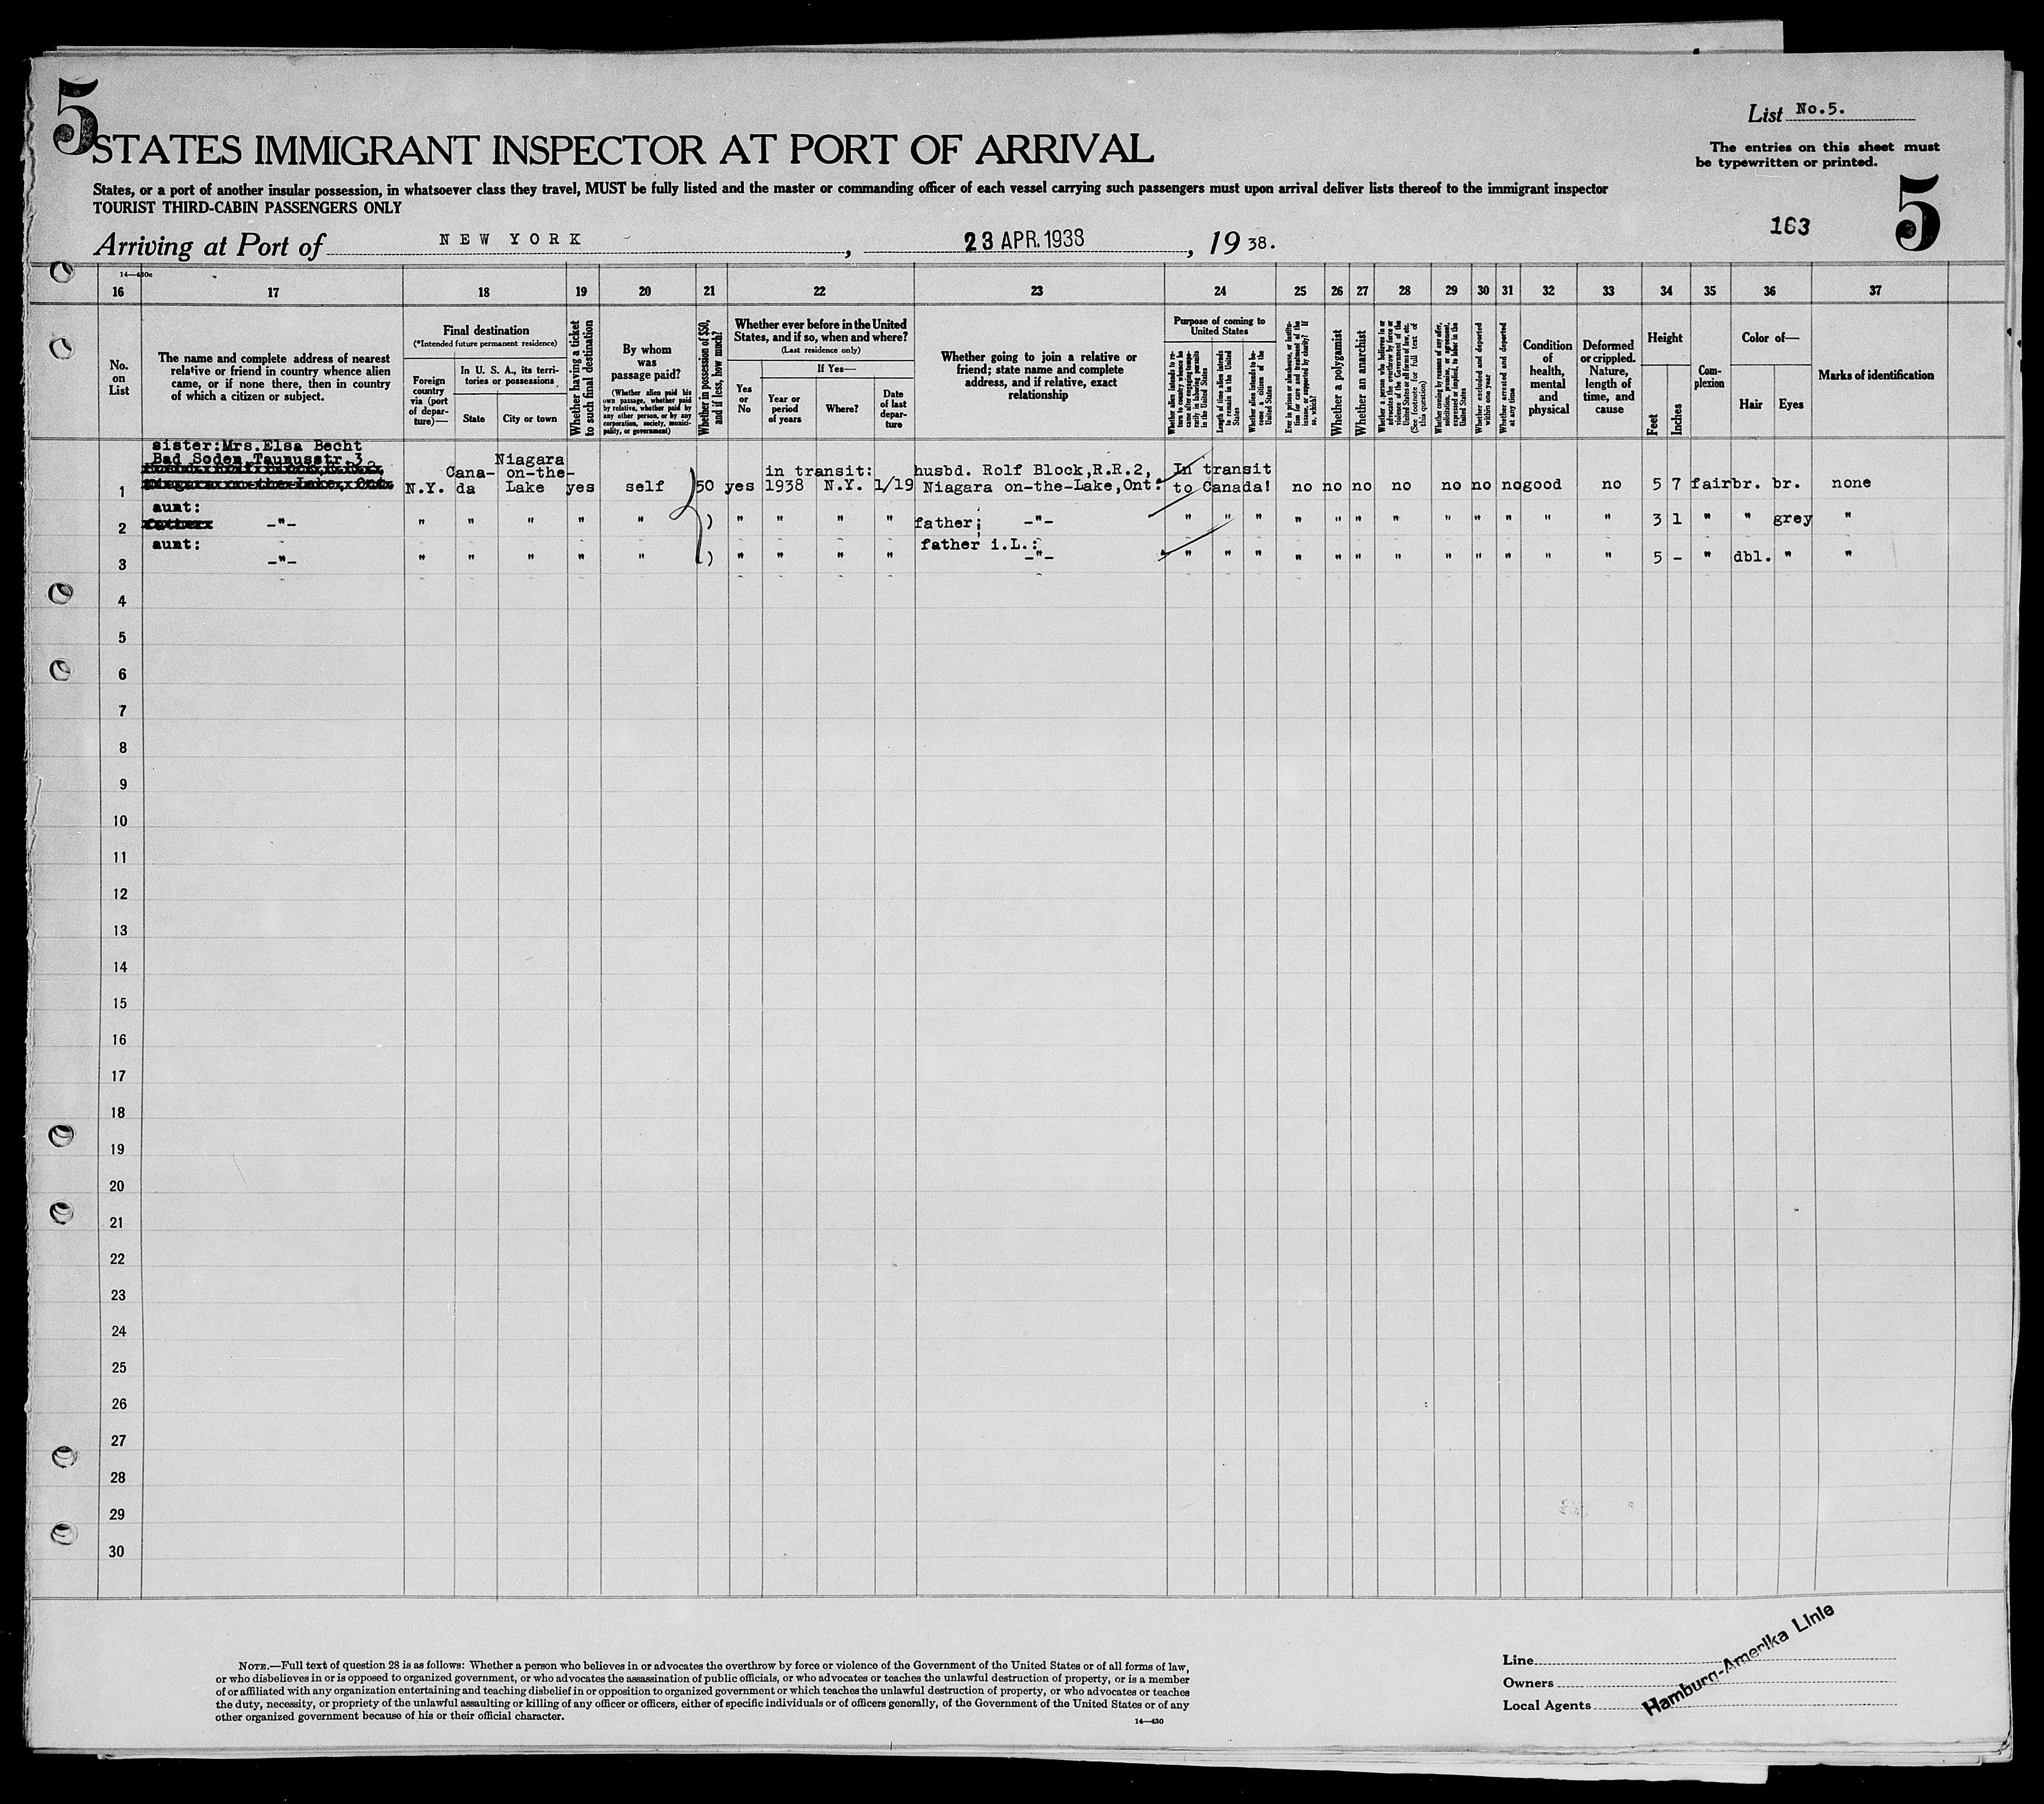 5
STATES IMMIGRANT INSPECTOR AT PORT OF ARRIVAL
List No.5.
The entries on this sheet must
be typewritten or printed.
States, or a port of another insular possession, in whatsoever class they travel, MUST be fully listed and the master or commanding officer of each vessel carrying such passengers must upon arrival deliver lists thereof to the immigrant inspector
TOURIST THIRD-CABIN PASSENGERS ONLY
5
163
Arriving at Port of NEW YORK, 23 APR. 1938, 1938.
14—430c
16 17 18 19 20 21 22 23 24 25 26 27 28 29 30 31 32 33 34 35 36 37
No.
on
List
The name and complete address of nearest
relative or friend in country whence alien
came, or if none there, then in country
of which a citizen or subject.
Final destination
(*Intended future permanent residence)
Foreign
country
via (port
of depar-
ture)—
In U. S. A., its terri-
tories or possessions
State
City or town
Whether having a ticket
to such final destination
By whom
was
passage paid?
(Whether alien paid his
own passage, whether paid
by relative, whether paid by
any other person, or by any
corporation, society, munici-
pality, or government)
Whether in possession of $50,
and if less, how much?
Whether ever before in the United
States, and if so, when and where?
(Last residence only)
Yes
or
No
If Yes—
Year or
period
of years
Where?
Date
of last
depar-
ture
Whether going to join a relative or
friend; state name and complete
address, and if relative, exact
relationship
Purpose of coming to
United States
Whether alien intends to re-
turn to country whence he
came after engaging tempo-
rarily in laboring pursuits
in the United States
Length of time alien intends
to remain in the United
States
Whether alien intends to be-
come a citizen of the
United States
Ever in prison or almshouse, or institu-
tion for care and treatment of the
insane, or supported by charity? If
so, which?
Whether a polygamist
Whether an anarchist
Whether a person who believes in or
advocates the overthrow by force or
violence of the Government of the
United States or all forms of law, etc.
(See footnote for full text of
this question)
Whether coming by reasons of any offer,
solicitation, promise, or agreement,
expressed or implied, to labor in the
United States
Whether excluded and deported
within one year
Whether arrested and deported
at any time
Condition
of
health,
mental
and
physical
Deformed
or crippled.
Nature,
length of
time, and
cause
Height
Feet
Inches
Com-
plexion
Color of—
Hair
Eyes
Marks of identification
sister:Mrs.Elsa Becht
Bad Soden Taunusstr.3
1 N.Y. Cana-
da Niagara
on-the-
Lake yes self 50 yes in transit:
1938 N.Y. 1/19 husbd. Rolf Block,R.R.2,
Niagara on-the-Lake,Ont. In transit
to Canada! no no no no no no no good no 5 7 fair br. br. none
aunt:
2 -"- " " " " " ) " " " " father: -"- " " " " " " " " " " " " 3 1 " " grey "
aunt:
3 -"- " " " " " ) " " " " father i.L.:
-"- " " " " " " " " " " " " 5 - " dbl. " "
4
5
6
7
8
9
10
11
12
13
14
15
16
17
18
19
20
21
22
23
24
25
26
27
28
29
30
NOTE.—Full text of question 28 is as follows: Whether a person who believes in or advocates the overthrow by force or violence of the Government of the United States or of all forms of law,
or who disbelieves in or is opposed to organized government, or who advocates the assassination of public officials, or who advocates or teaches the unlawful destruction of property, or is a member
of or affiliated with any organization entertaining and teaching disbelief in or opposition to organized government or which teaches the unlawful destruction of property, or who advocates or teaches
the duty, necessity, or propriety of the unlawful assaulting or killing of any officer or officers, either of specific individuals or of officers generally, of the Government of the United States or of any
other organized government because of his or their official character.
14—430
Line
Owners
Local Agents
Hamburg-Amerika Linie